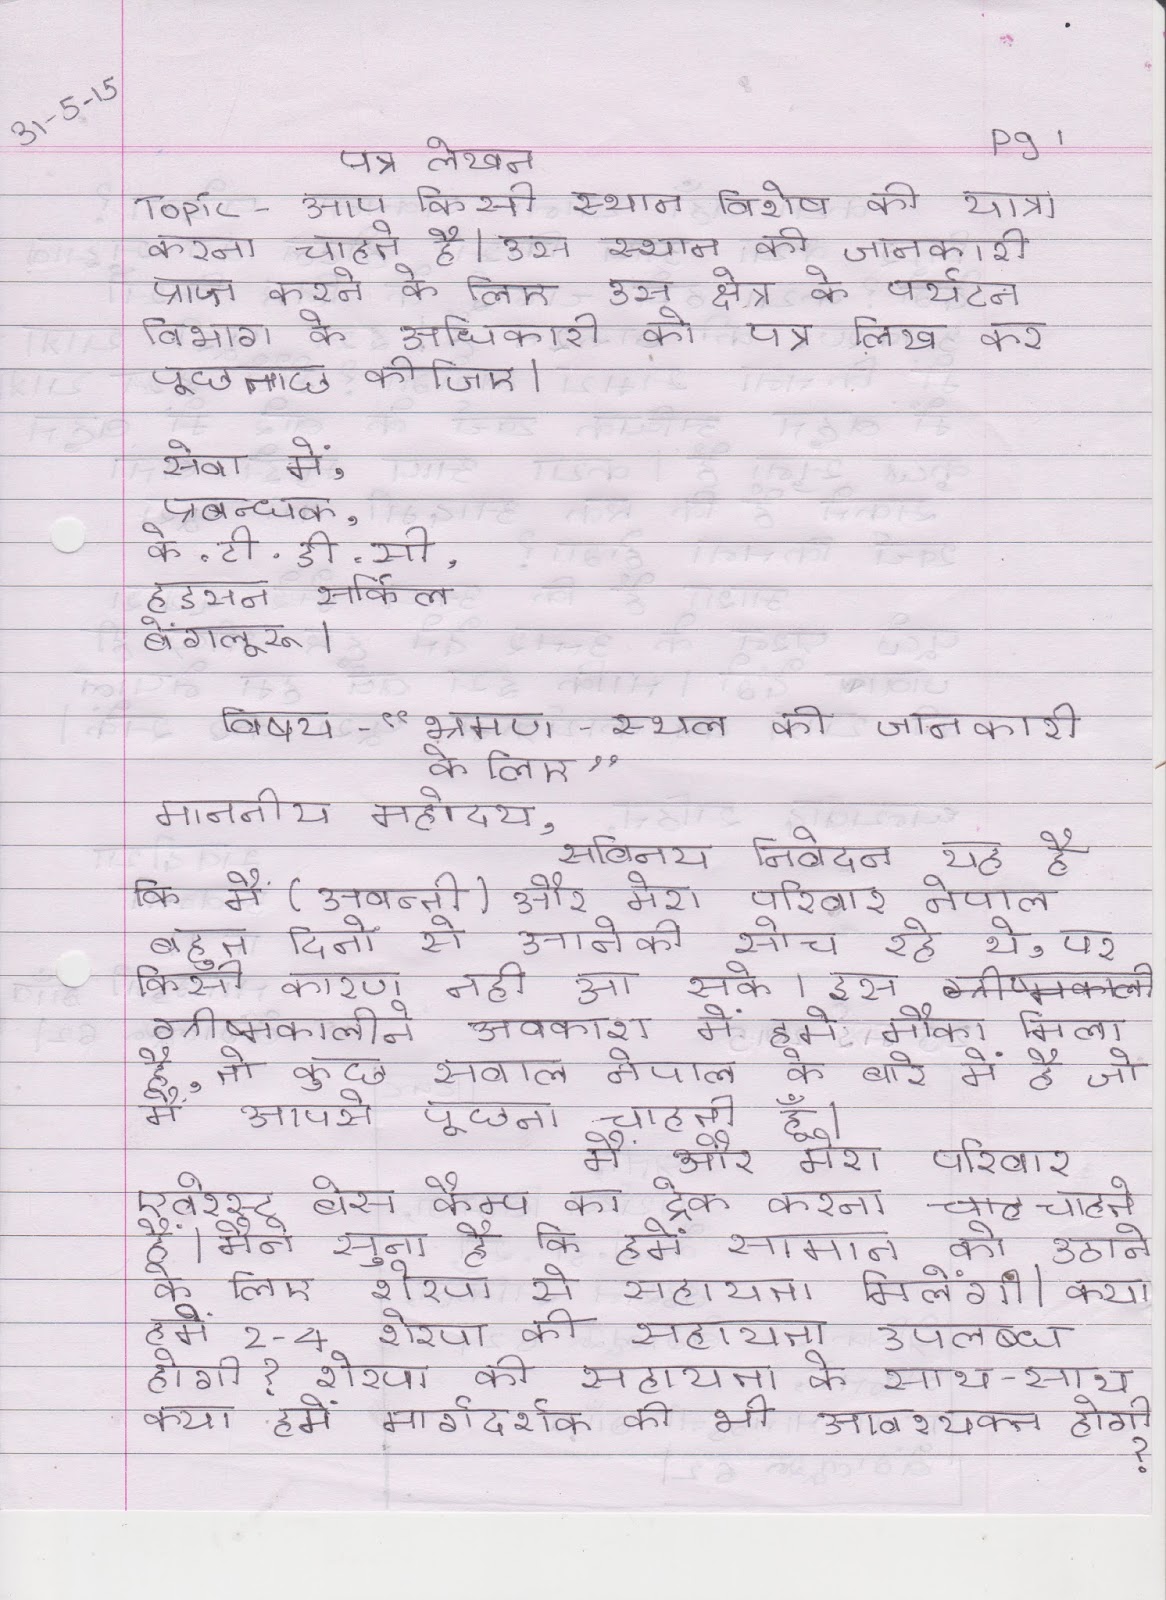 31-5-15
pg 1
पत्र लेखन
Topic - आप किसी स्थान विशेष की यात्रा
करना चाहते है। उस स्थान की जानकारी
प्राप्त करने के लिए उस क्षेत्र के पर्यटन
विभाग के अधिकारी को पत्र लिख कर
पूछताछ कीजिए।
सेवा में,
प्रबन्धक,
के.टी.डी.सी,
हडसन सर्किल
बेंगलूरू।
विषय - “भ्रमण - स्थल की जानकारी
के लिए”
माननीय महोदय,
सविनय निवेदन यह है
कि मैं (अवन्ती) और मेरा परिवार नेपाल
बहुत दिनों से आनेकी सोच रहे थे, पर
किसी कारण नही आ सके। इस ग्रीष्मकाली
ग्रीष्मकालीने अवकाश में हमें मौका मिला
है, तो कुछ सवाल नेपाल के बारे में है जो
मैं आपसे पूछना चाहती हूँ।
मैं और मेरा परिवार
एवेरेस्ट बेस कैम्प का ट्रेक करना चाह चाहते
हैं। मैने सुना है कि हमें सामान को उठाने
के लिए शेरपा से सहायता मिलेंगी। क्या
हमें 2-4 शेरपा की सहायता उपलब्ध
होगी? शेरपा की सहायता के साथ-साथ
क्या हमें मार्गदर्शक की भी आवश्यक्त होगी
?